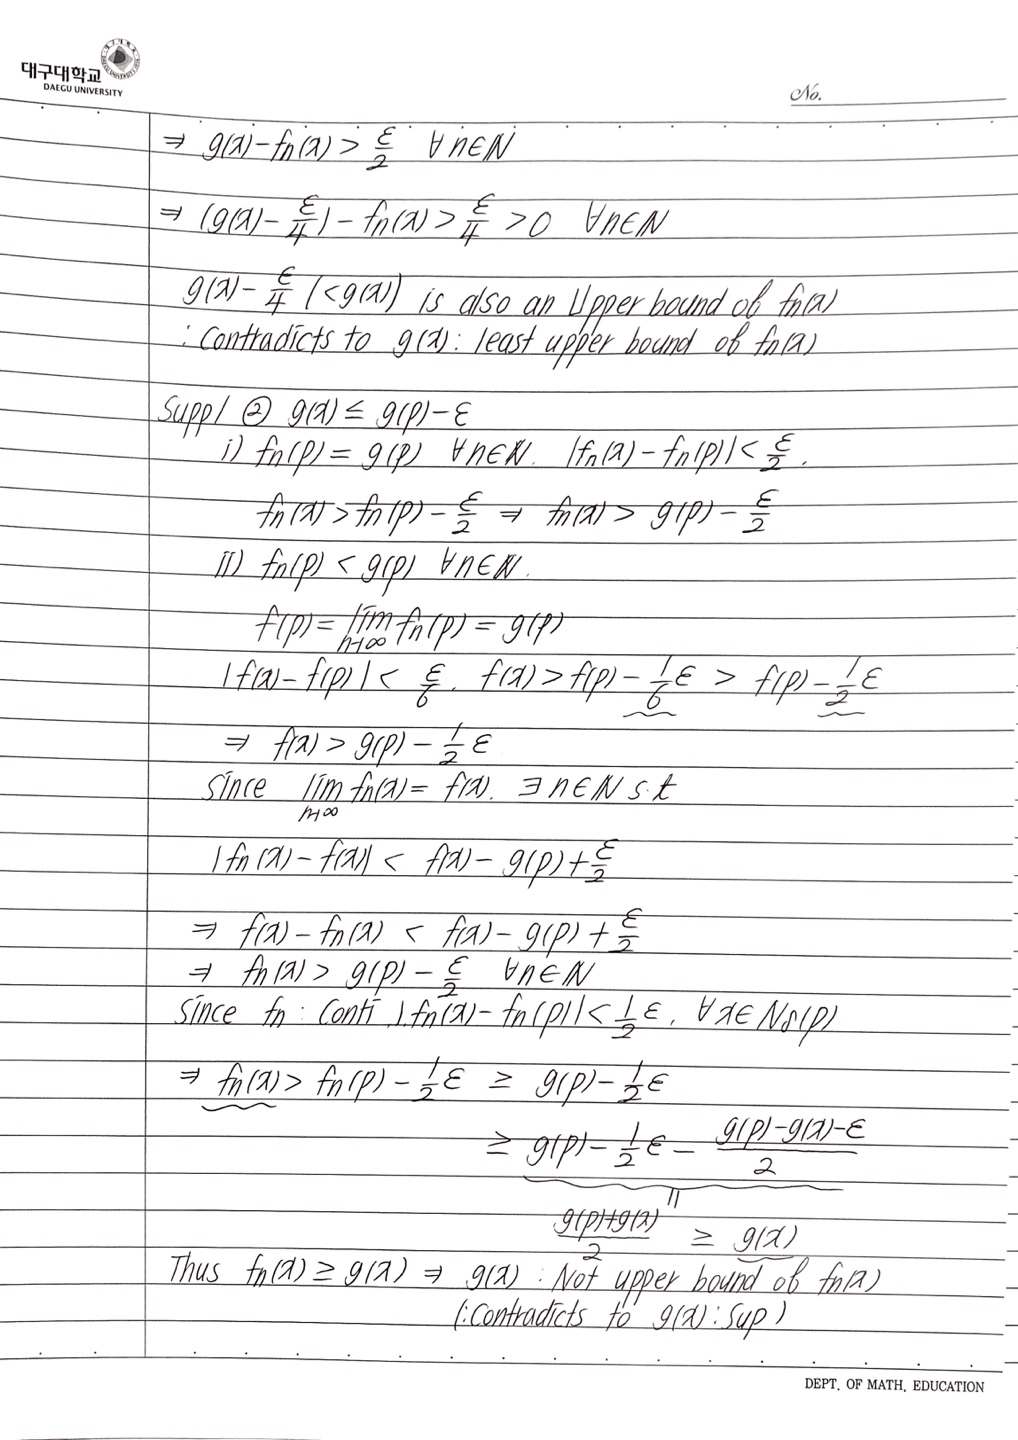 대구대학교
DAEGU UNIVERSITY
No.
⇒ g(x)-fn(x) > ε/2 ∀n∈N
⇒ (g(x)-ε/4)-fn(x) > ε/4 > 0 ∀n∈N
g(x)-ε/4 (<g(x)) is also an Upper bound of fn(x)
: Contradicts to g(x): least upper bound of fn(x)
Supp/ ② g(x) ≤ g(p)-ε
i) fn(p) = g(p) ∀n∈N. |fn(x)-fn(p)| < ε/2.
fn(x) > fn(p)-ε/2 ⇒ fn(x) > g(p)-ε/2
ii) fn(p) < g(p) ∀n∈N.
f(p) = lim n→∞ fn(p) = g(p)
|f(x)-f(p)| < ε/6. f(x) > f(p)-1/6 ε > f(p)-1/2 ε
⇒ f(x) > g(p)-1/2 ε
Since lim n→∞ fn(x) = f(x). ∃n∈N s.t
|fn(x)-f(x)| < f(x)-g(p)+ε/2
⇒ f(x)-fn(x) < f(x)-g(p)+ε/2
⇒ fn(x) > g(p)-ε/2 ∀n∈N
Since fn : Conti |fn(x)-fn(p)| < 1/2 ε. ∀x∈Nδ(p)
⇒ fn(x) > fn(p)-1/2 ε ≥ g(p)-1/2 ε
≥ g(p)-1/2 ε - (g(p)-g(x)-ε)/2
||
(g(p)+g(x))/2 ≥ g(x)
Thus fn(x) ≥ g(x) ⇒ g(x) : Not upper bound of fn(x)
(: Contradicts to g(x): Sup)
DEPT. OF MATH. EDUCATION